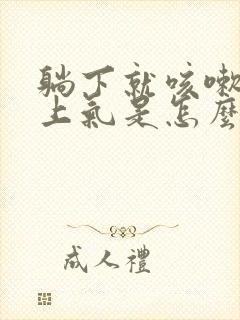 躺下就咳嗽
上氣是怎麼
成人禮